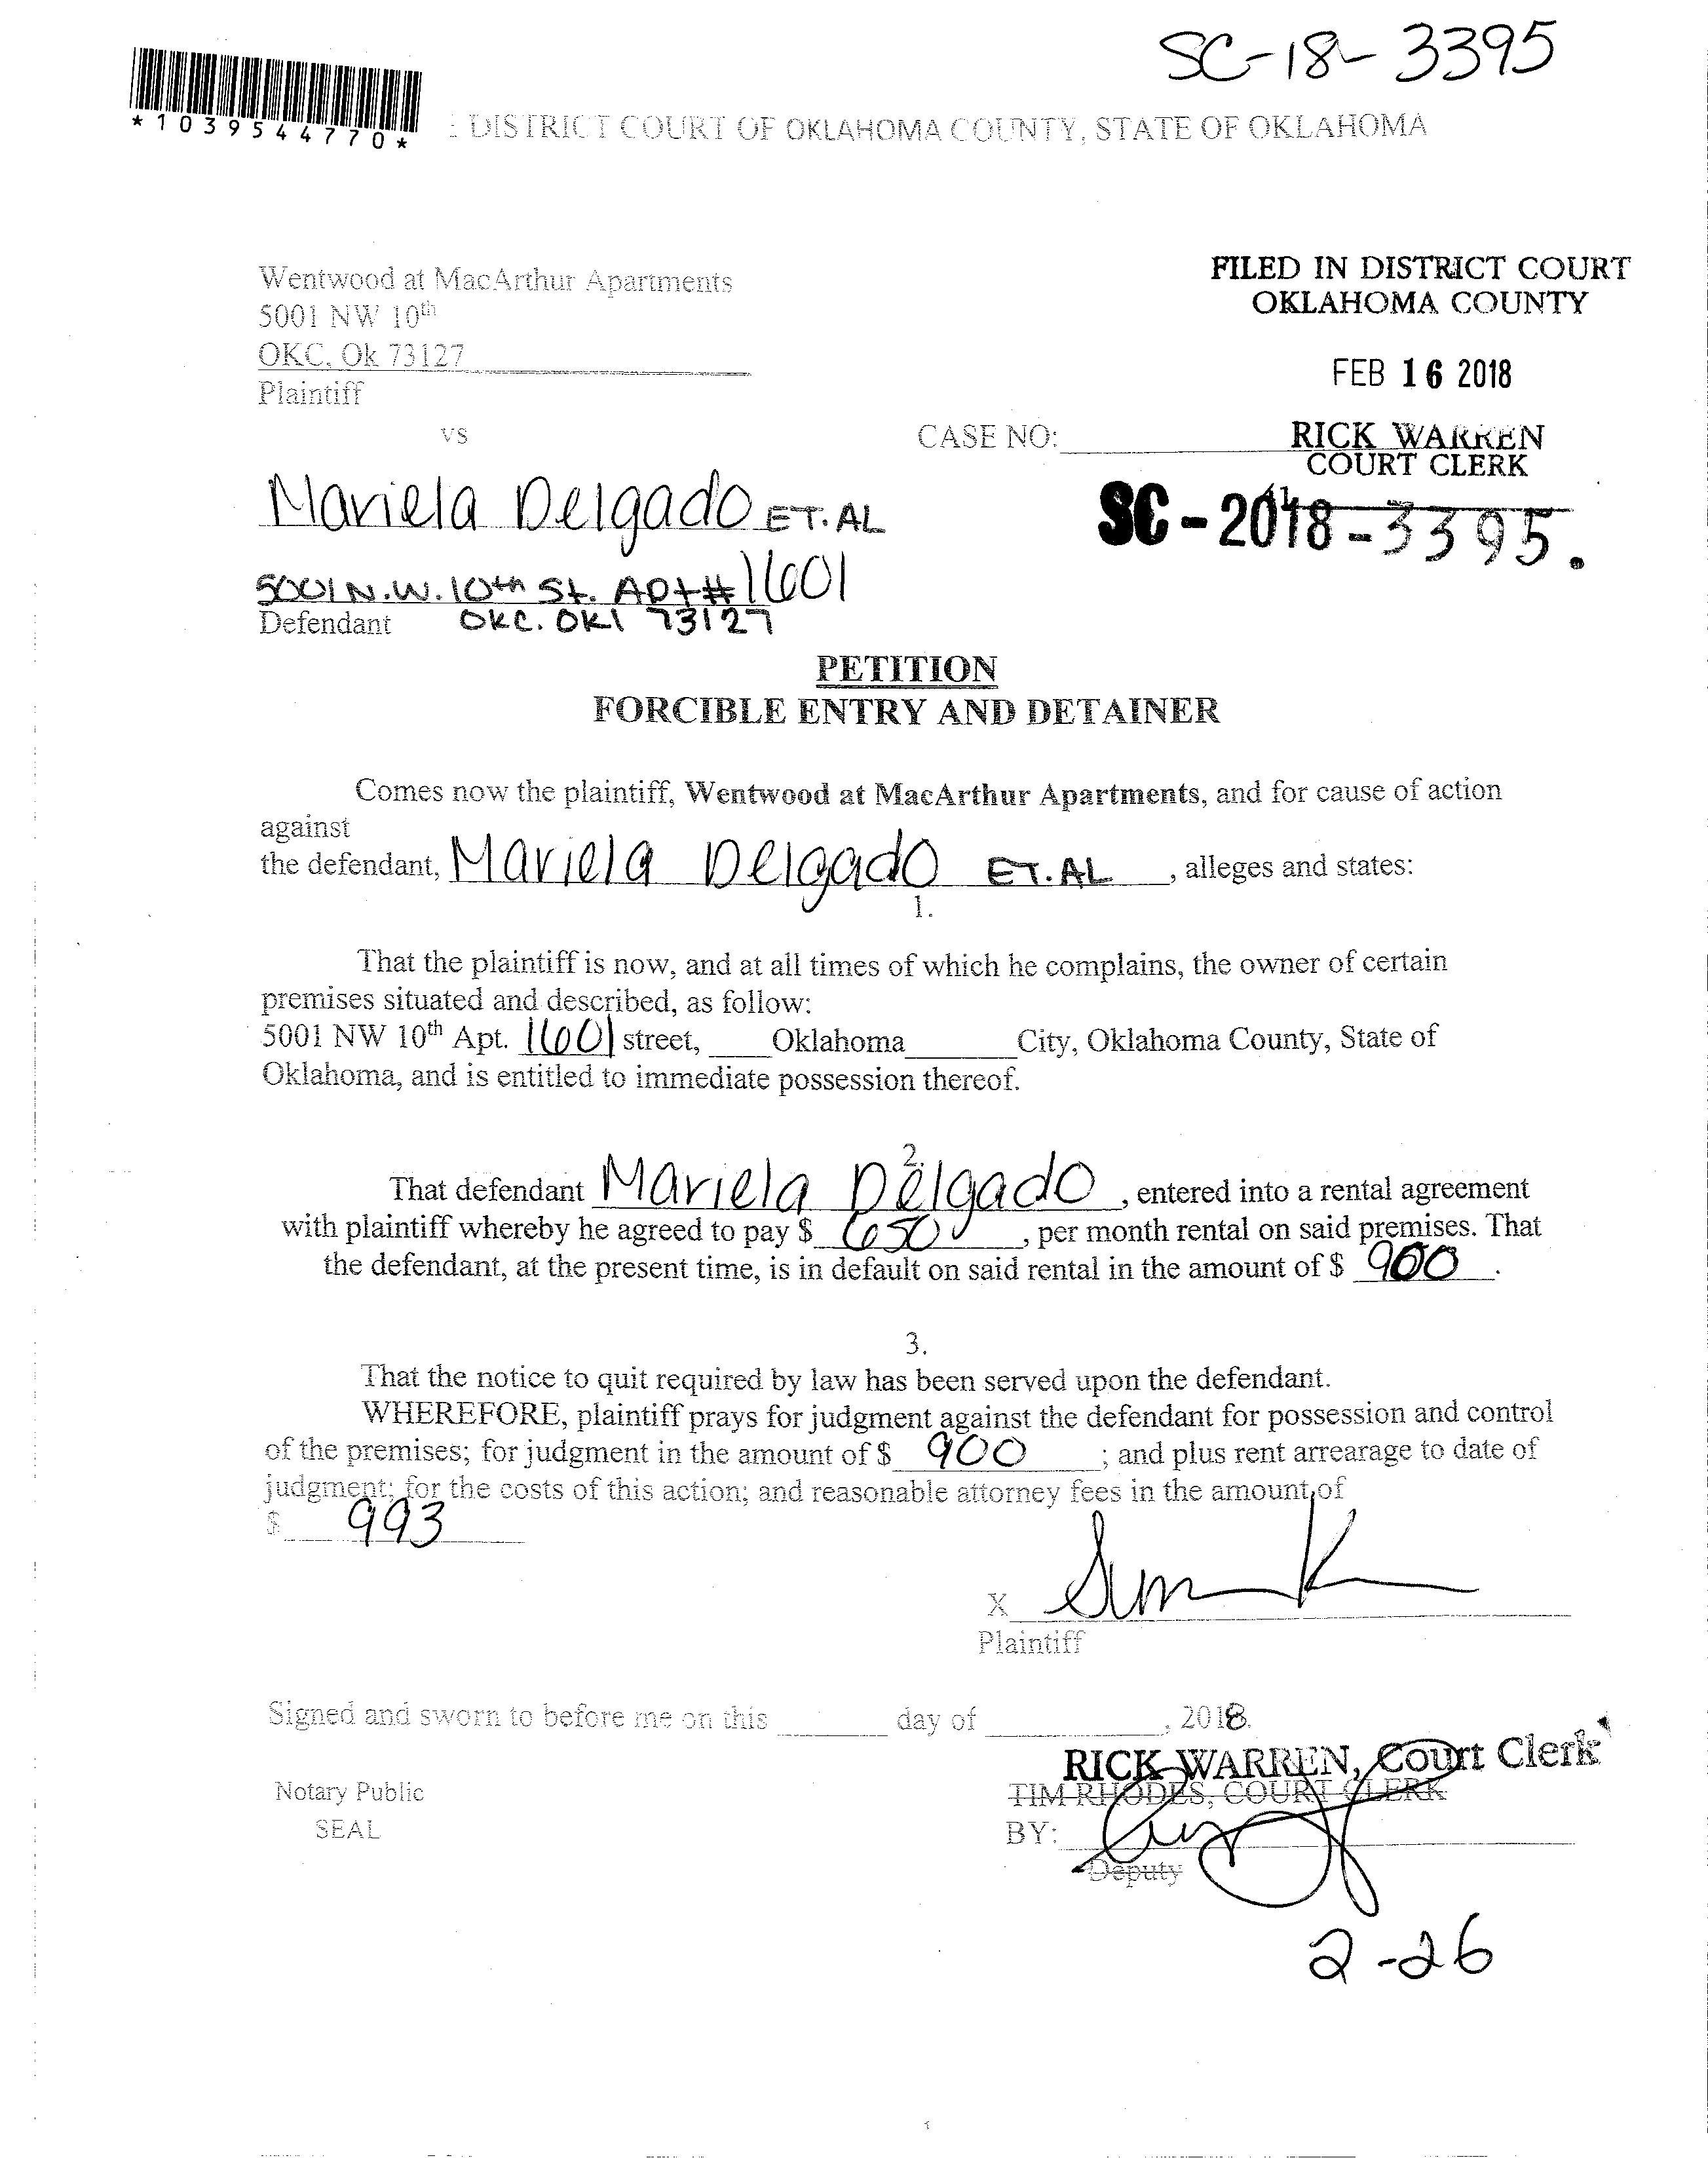 SC-18-3395
*1039544770*
DISTRICT COURT OF OKLAHOMA COUNTY, STATE OF OKLAHOMA
Wentwood at MacArthur Apartments
5001 NW 10th
OKC, Ok 73127
Plaintiff
FILED IN DISTRICT COURT
OKLAHOMA COUNTY
FEB 16 2018
RICK WARREN
COURT CLERK
vs
CASE NO:
SC-2018-3395.
Mariela Delgado ET.AL
5001 N.W. 10th St. APT# 1601
Defendant OKC. OKl 73127
PETITION
FORCIBLE ENTRY AND DETAINER
Comes now the plaintiff, Wentwood at MacArthur Apartments, and for cause of action
against
the defendant, Mariela Delgado ET.AL , alleges and states:
1.
That the plaintiff is now, and at all times of which he complains, the owner of certain
premises situated and described, as follow:
5001 NW 10th Apt. 1601 street, Oklahoma City, Oklahoma County, State of
Oklahoma, and is entitled to immediate possession thereof.
2.
That defendant Mariela Delgado , entered into a rental agreement
with plaintiff whereby he agreed to pay $ 650 , per month rental on said premises. That
the defendant, at the present time, is in default on said rental in the amount of $ 900 .
3.
That the notice to quit required by law has been served upon the defendant.
WHEREFORE, plaintiff prays for judgment against the defendant for possession and control
of the premises; for judgment in the amount of $ 900 ; and plus rent arrearage to date of
judgment; for the costs of this action; and reasonable attorney fees in the amount of
$ 993
X
Plaintiff
Signed and sworn to before me on this day of , 2018.
RICK WARREN, Court Clerk
TIM RHODES, COURT CLERK
Notary Public
SEAL
BY:
Deputy
2-26